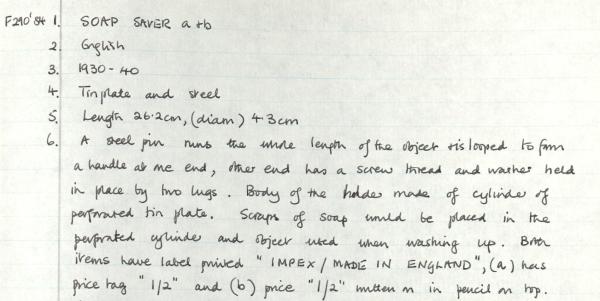 F290'84 1. SOAP SAVER a+b
2. English
3. 1930-40
4. Tinplate and steel
5. Length 26.2cm, (diam) 4.3cm
6. A steel pin runs the whole length of the object & is looped to form
a handle at one end, other end has a screw thread and washer held
in place by two lugs. Body of the holder made of cylinder of
perforated tin plate. Scraps of soap would be placed in the
perforated cylinder and object used when washing up. Both
items have label printed "IMPEX/MADE IN ENGLAND", (a) has
price tag "1/2" and (b) price "1/2" written on in pencil on top.